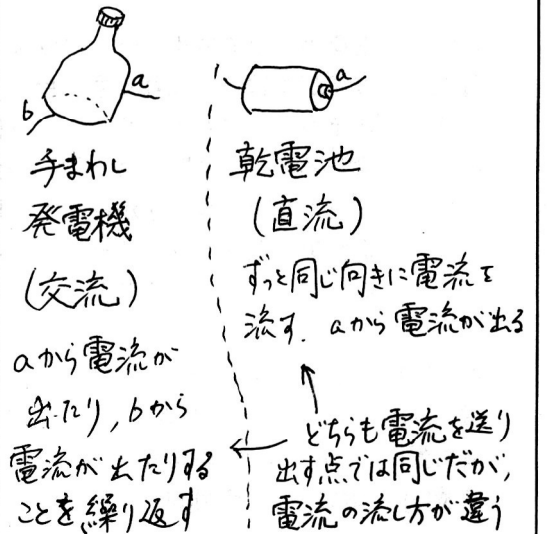 a
b
手まわし
発電機
(交流)
aから電流が
出たり,bから
電流が出たりする
ことを繰り返す
a
乾電池
(直流)
ずっと同じ向きに電流を
流す.aから電流が出る
どちらも電流を送り
出す点では同じだが,
電流の流し方が違う